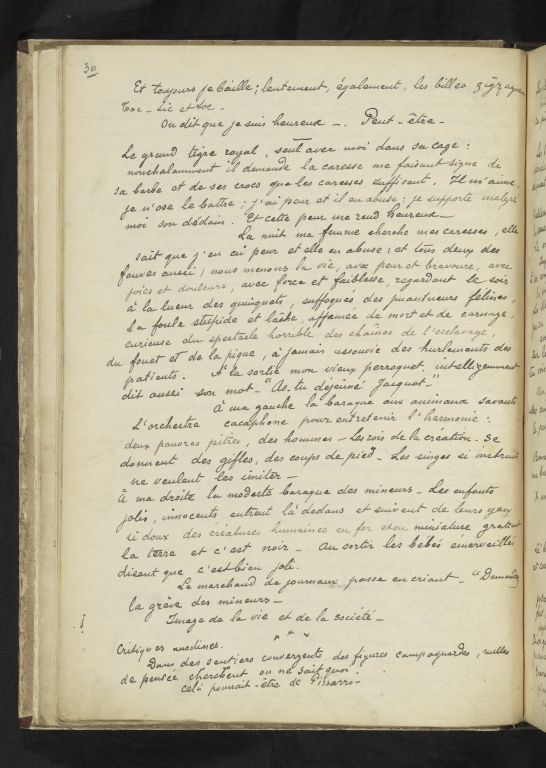 30
Et toujours je baille; lentement, également, les billes zigzague
Toc - tic et toc -
On dit que je suis heureux -. Peut-être -
Le grand tigre royal, seul avec moi dans sa cage:
nonchalamment il demande la caresse me faisant signe de
sa barbe et de ses crocs que les caresses suffisent. Il m'aime,
je n'ose le battre; j'ai peur et il en abuse: je supporte malgré
moi son dédain. Et cette peur me rend heureux -
La nuit ma femme cherche mes caresses, elle
sait que j'en ai peur et elle en abuse: et tous deux des
fauves aussi, nous menons la vie, avec peur et bravoure, avec
joies et douleurs, avec force et faiblesse, regardant le soir
à la lueur des quinquets, suffoqués des puanteurs félines,
la foule stupide et lâche, affamée de mort et de carnage,
curieuse du spectacle horrible des chaînes de l'esclavage,
du fouet et de la pique, à jamais assouvie des hurlements des
patients. A la sortie mon vieux perroquet, intelligemment
dit aussi son mot - "As-tu déjeuné Jacquot -"
A ma gauche la baraque aux animaux savants
L'orchestre cacaphone pour entretenir l'harmonie:
deux pauvres pitres, des hommes - Les rois de la création. Se
donnent des gifles, des coups de pied - Les singes si instruits
ne veulent les imiter -
À ma droite la modeste baraque des mineurs - Les enfants
jolis, innocents entrent là dedans et suivent de leurs yeux
si doux des créatures humaines en fer et en miniature grattant
la terre et c'est noir - Au sortir les bébés émerveillés
disent que c'est bien joli.
Le marchand de journaux passe en criant - "Demandez
la grève des mineurs -
Image de la vie et de la société -
Critiques anodines.
Dans des sentiers convergents des figures campagnardes, nulles
de pensée cherchent on ne sait quoi
cela pourrait-être de Pissarro -